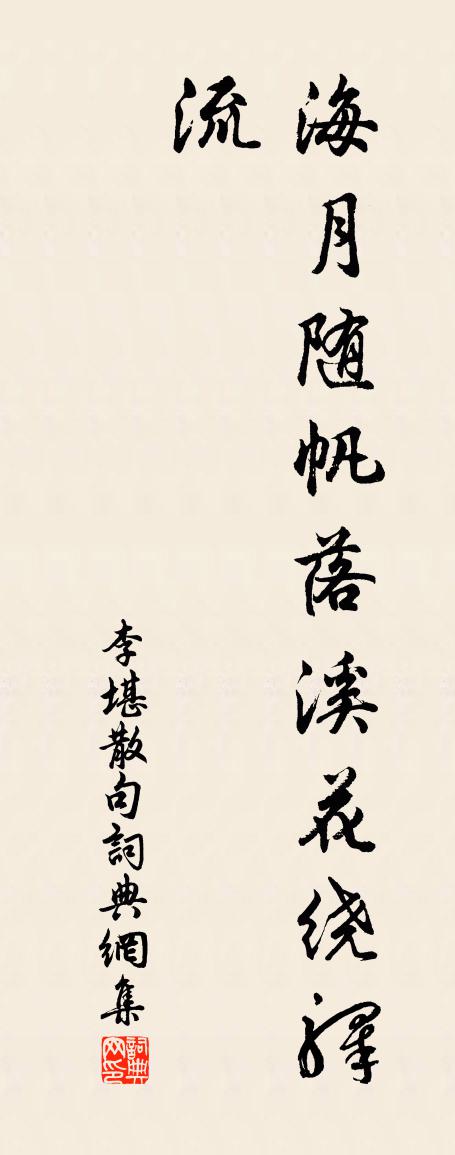 海月随帆落溪花绕驛
流
李堪散句詞典網集
詞典
网印